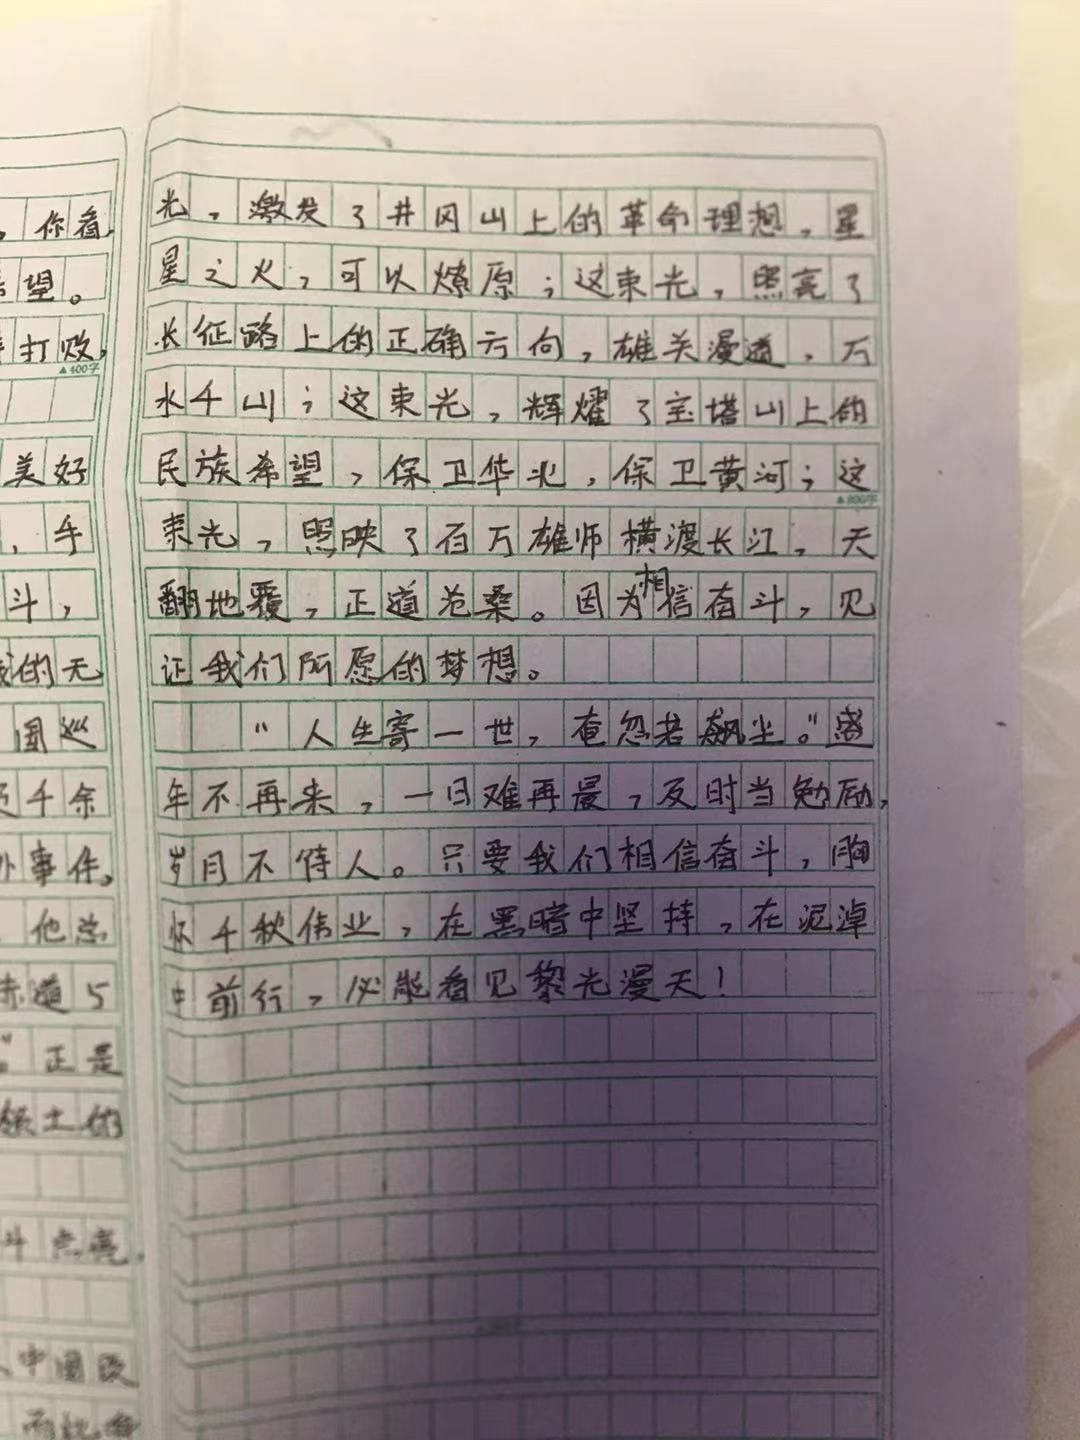 ，你看
望。
打败，
▲400字
美好
，手
斗，
的无
国巡
千余
事件。
他总
道与
”正是
领土的
斗点亮，
中国改
光，激发了井冈山上的革命理想，星
星之火，可以燎原；这束光，照亮了
长征路上的正确方向，雄关漫道，万
水千山；这束光，辉耀了宝塔山上的
民族希望，保卫华北，保卫黄河；这
▲800字
束光，照映了百万雄师横渡长江，天
翻地覆，正道沧桑。因为相信奋斗，见
证我们所愿的梦想。
“人生寄一世，奄忽若飙尘。”盛
年不再来，一日难再晨，及时当勉励，
岁月不待人。只要我们相信奋斗，胸
怀千秋伟业，在黑暗中坚持，在泥淖
中前行，必能看见黎光漫天！